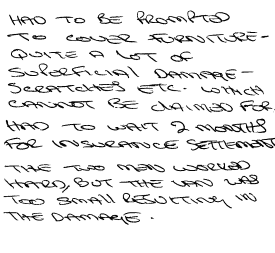 HAD TO BE PROMPTED
TO COVER FURNITURE -
QUITE A LOT OF
SUPERFICIAL DAMAGE -
SCRATCHES ETC. WHICH
CANNOT BE CLAIMED FOR.
HAD TO WAIT 2 MONTHS
FOR INSURANCE SETTLEMENT
THE TWO MEN WORKED
HARD, BUT THE VAN WAS
TOO SMALL RESULTING IN
THE DAMAGE.